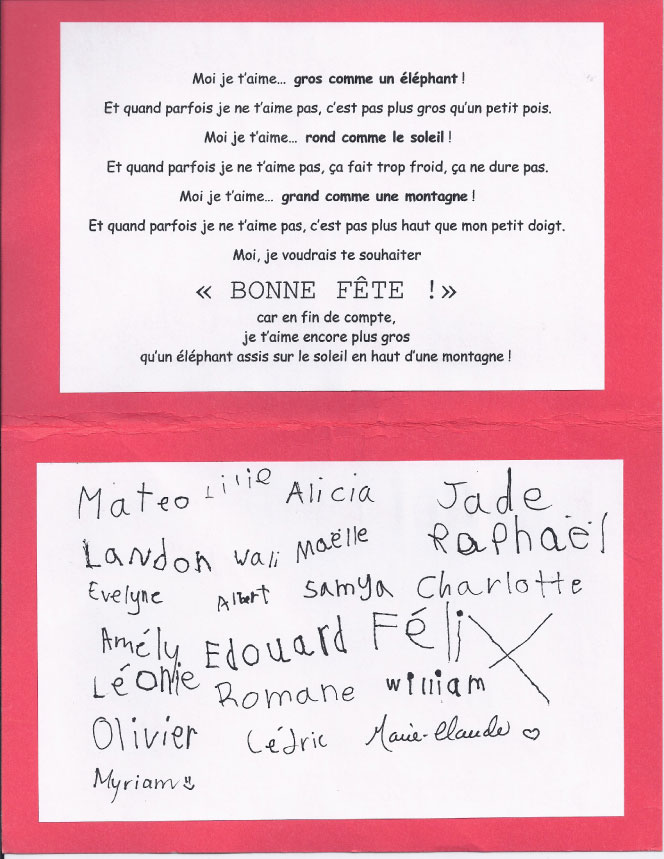 Moi je t'aime... gros comme un éléphant !
Et quand parfois je ne t'aime pas, c'est pas plus gros qu'un petit pois.
Moi je t'aime... rond comme le soleil !
Et quand parfois je ne t'aime pas, ça fait trop froid, ça ne dure pas.
Moi je t'aime... grand comme une montagne !
Et quand parfois je ne t'aime pas, c'est pas plus haut que mon petit doigt.
Moi, je voudrais te souhaiter
« BONNE FÊTE !»
car en fin de compte,
je t'aime encore plus gros
qu'un éléphant assis sur le soleil en haut d'une montagne !
Mateo Lilie Alicia Jade
Landon Wali Maëlle Raphaël
Evelyne Albert Samya Charlotte
Amély Edouard Félix
Léonie Romane William
Olivier Cédric Marie-Claude
Myriam